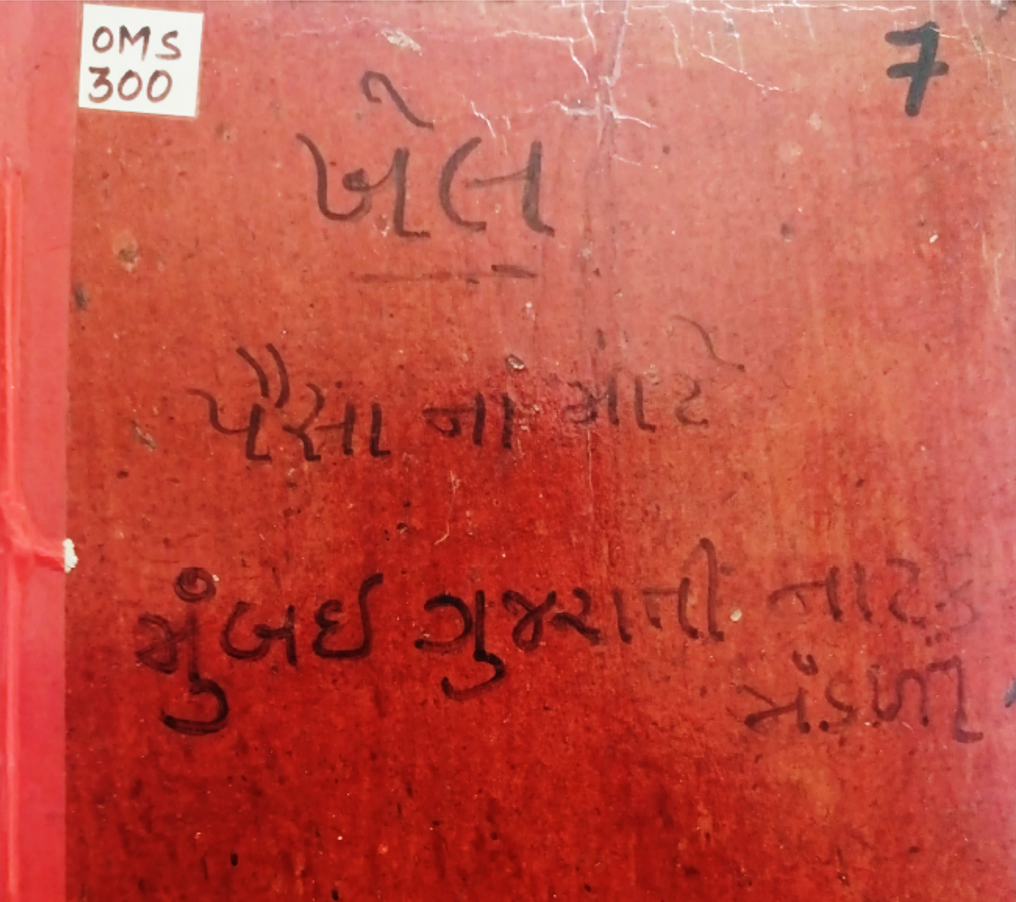 OMS
300
7
ખેલ
પૈસા નાં માટે
મુંબઈ ગુજરાતી નાટક
મંડળી